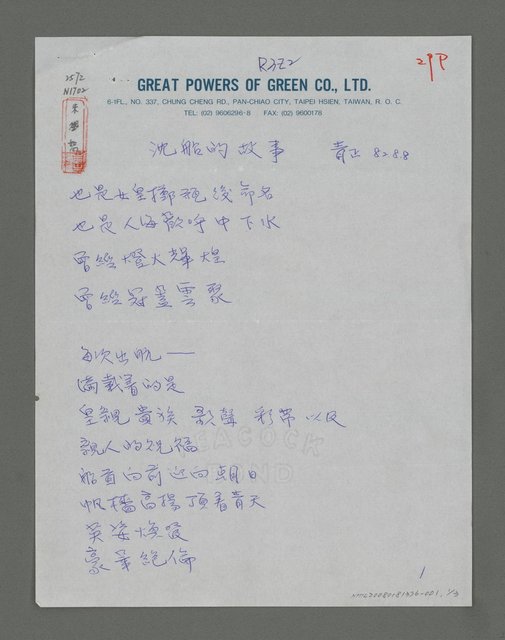 R322
29P
2572
N1702
GREAT POWERS OF GREEN CO., LTD.
6-1FL., NO. 337, CHUNG CHENG RD., PAN-CHIAO CITY, TAIPEI HSIEN, TAIWAN, R. O. C.
TEL: (02) 9606296-8 FAX: (02) 9600178
沈船的故事 82.8.8
也是女皇擲瓶後命名
也是人海歡呼中下水
曾經燈火輝煌
曾經冠蓋雲聚
每次出航——
滿載著的是
皇親貴族 歌聲 彩帶 以及
親人的祝福
船首向前迎向朝日
帆檣高揚頂着青天
英姿煥發
豪華絕倫
PEACOCK
BOND
1